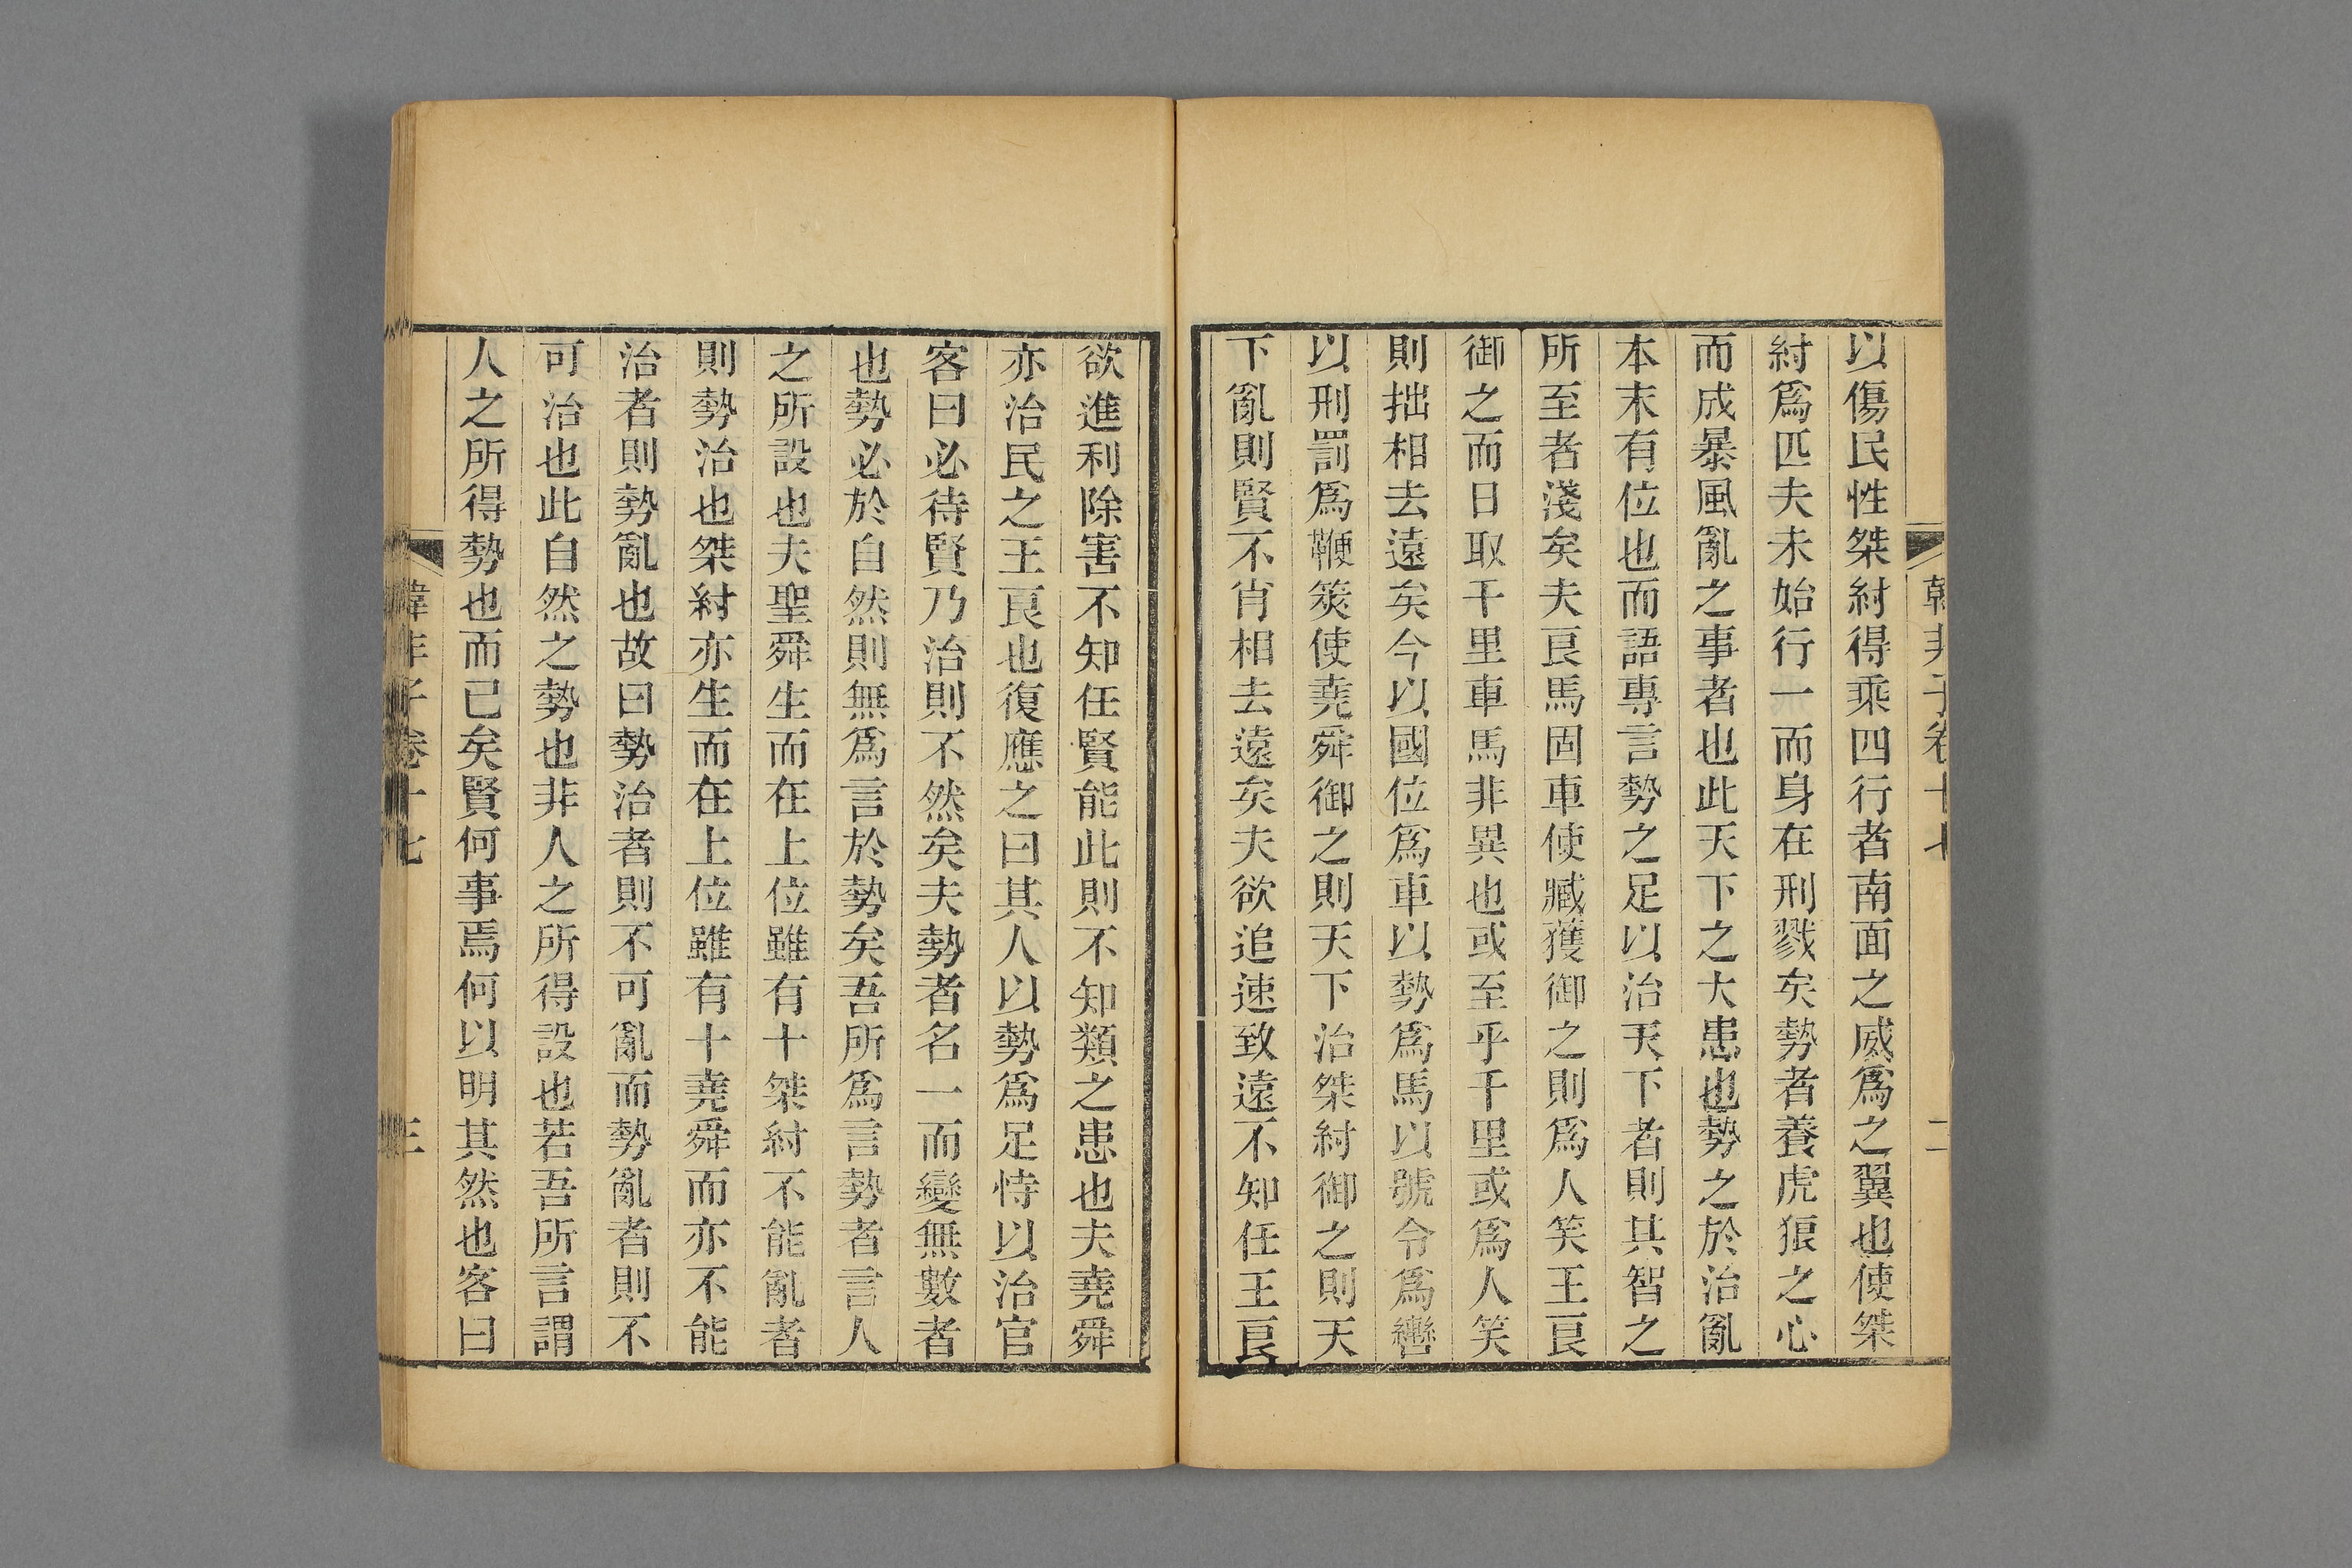 韓非子卷十七
二
以傷民性桀紂得乘四行者南面之威爲之翼也使桀
紂爲匹夫未始行一而身在刑戮矣勢者養虎狼之心
而成暴風亂之事者也此天下之大患也勢之於治亂
本末有位也而語專言勢之足以治天下者則其智之
所至者淺矣夫良馬固車使臧獲御之則爲人笑王良
御之而日取千里車馬非異也或至乎千里或爲人笑
則拙相去遠矣今以國位爲車以勢爲馬以號令爲轡
以刑罰爲鞭筴使堯舜御之則天下治桀紂御之則天
下亂則賢不肖相去遠矣夫欲追速致遠不知任王良
欲進利除害不知任賢能此則不知類之患也夫堯舜
亦治民之王良也復應之曰其人以勢爲足恃以治官
客曰必待賢乃治則不然矣夫勢者名一而變無數者
也勢必於自然則無爲言於勢矣吾所爲言勢者言人
之所設也夫聖舜生而在上位雖有十桀紂不能亂者
則勢治也桀紂亦生而在上位雖有十堯舜而亦不能
治者則勢亂也故曰勢治者則不可亂而勢亂者則不
可治也此自然之勢也非人之所得設也若吾所言謂
人之所得勢也而已矣賢何事焉何以明其然也客曰
韓非子卷十七
三